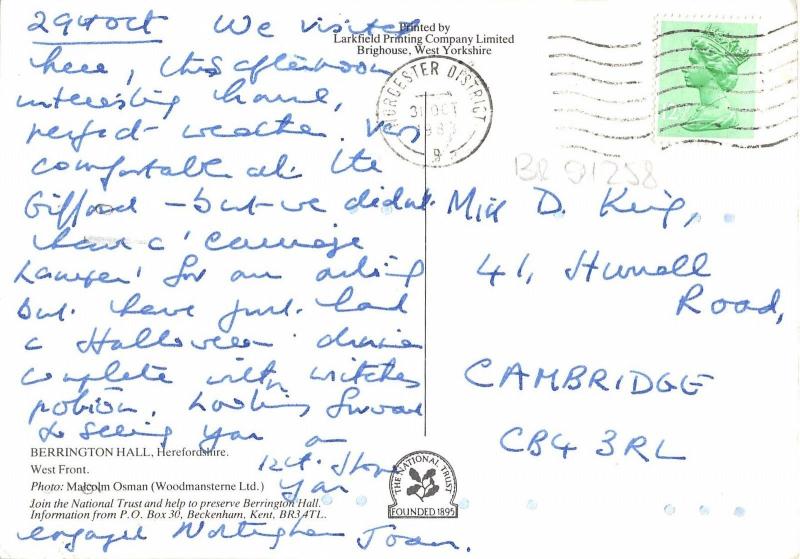 29th Oct We visited
here, this afternoon
interesting house,
perfect weather. Very
comfortable at the
Gifford – but we didn't
have a 'carriage
hamper' for our outing
but have just had
a Halloween dinner
complete with witches
potion. Looking forward
to seeing you on
12th. Hope
you
engaged Joan.
Printed by
Larkfield Printing Company Limited
Brighouse, West Yorkshire
WORCESTER DISTRICT
31 OCT
BR 01258
Miss D. King,
41, Hurrell
Road,
CAMBRIDGE
CB4 3RL
BERRINGTON HALL, Herefordshire.
West Front.
Photo: Malcolm Osman (Woodmansterne Ltd.)
Join the National Trust and help to preserve Berrington Hall.
Information from P.O. Box 30, Beckenham, Kent, BR3 4TL.
THE NATIONAL TRUST
FOUNDED 1895